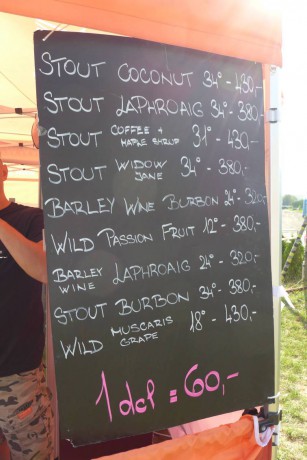 STOUT COCONUT 34° - 430,-
STOUT LAPHROAIG 34° - 380,-
STOUT COFFEE + MAPLE SYRUP 31° - 430,-
STOUT WIDOW JANE 34° - 380,-
BARLEY WINE BURBON 24° - 320,-
WILD PASSION FRUIT 12° - 380,-
BARLEY WINE LAPHROAIG 24° - 320,-
STOUT BURBON 34° - 380,-
WILD MUSCARIS GRAPE 18° - 430,-
1 dcl = 60,-